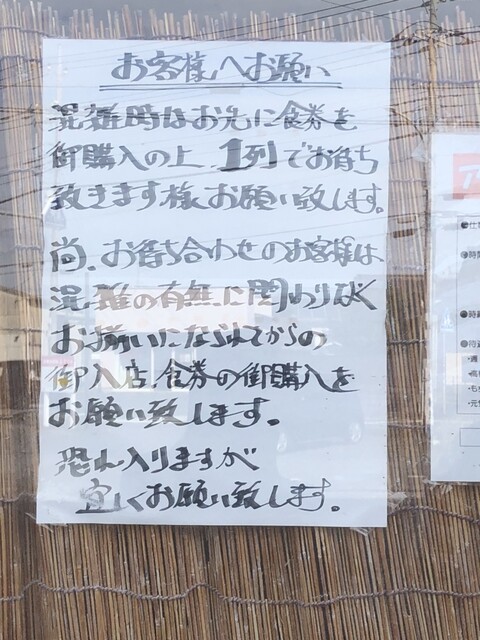 お客様へお願い
混雑時はお先に食券を
御購入の上、1列でお待ち
致きます様お願い致します。
尚、お待ち合わせのお客様は
混雑の有無に関わりなく
お揃いになられてからの
御入店、食券の御購入を
お願い致します。
恐れ入りますが
宜しくお願い致します。
ア
●仕
●時間
●時
●待
・週